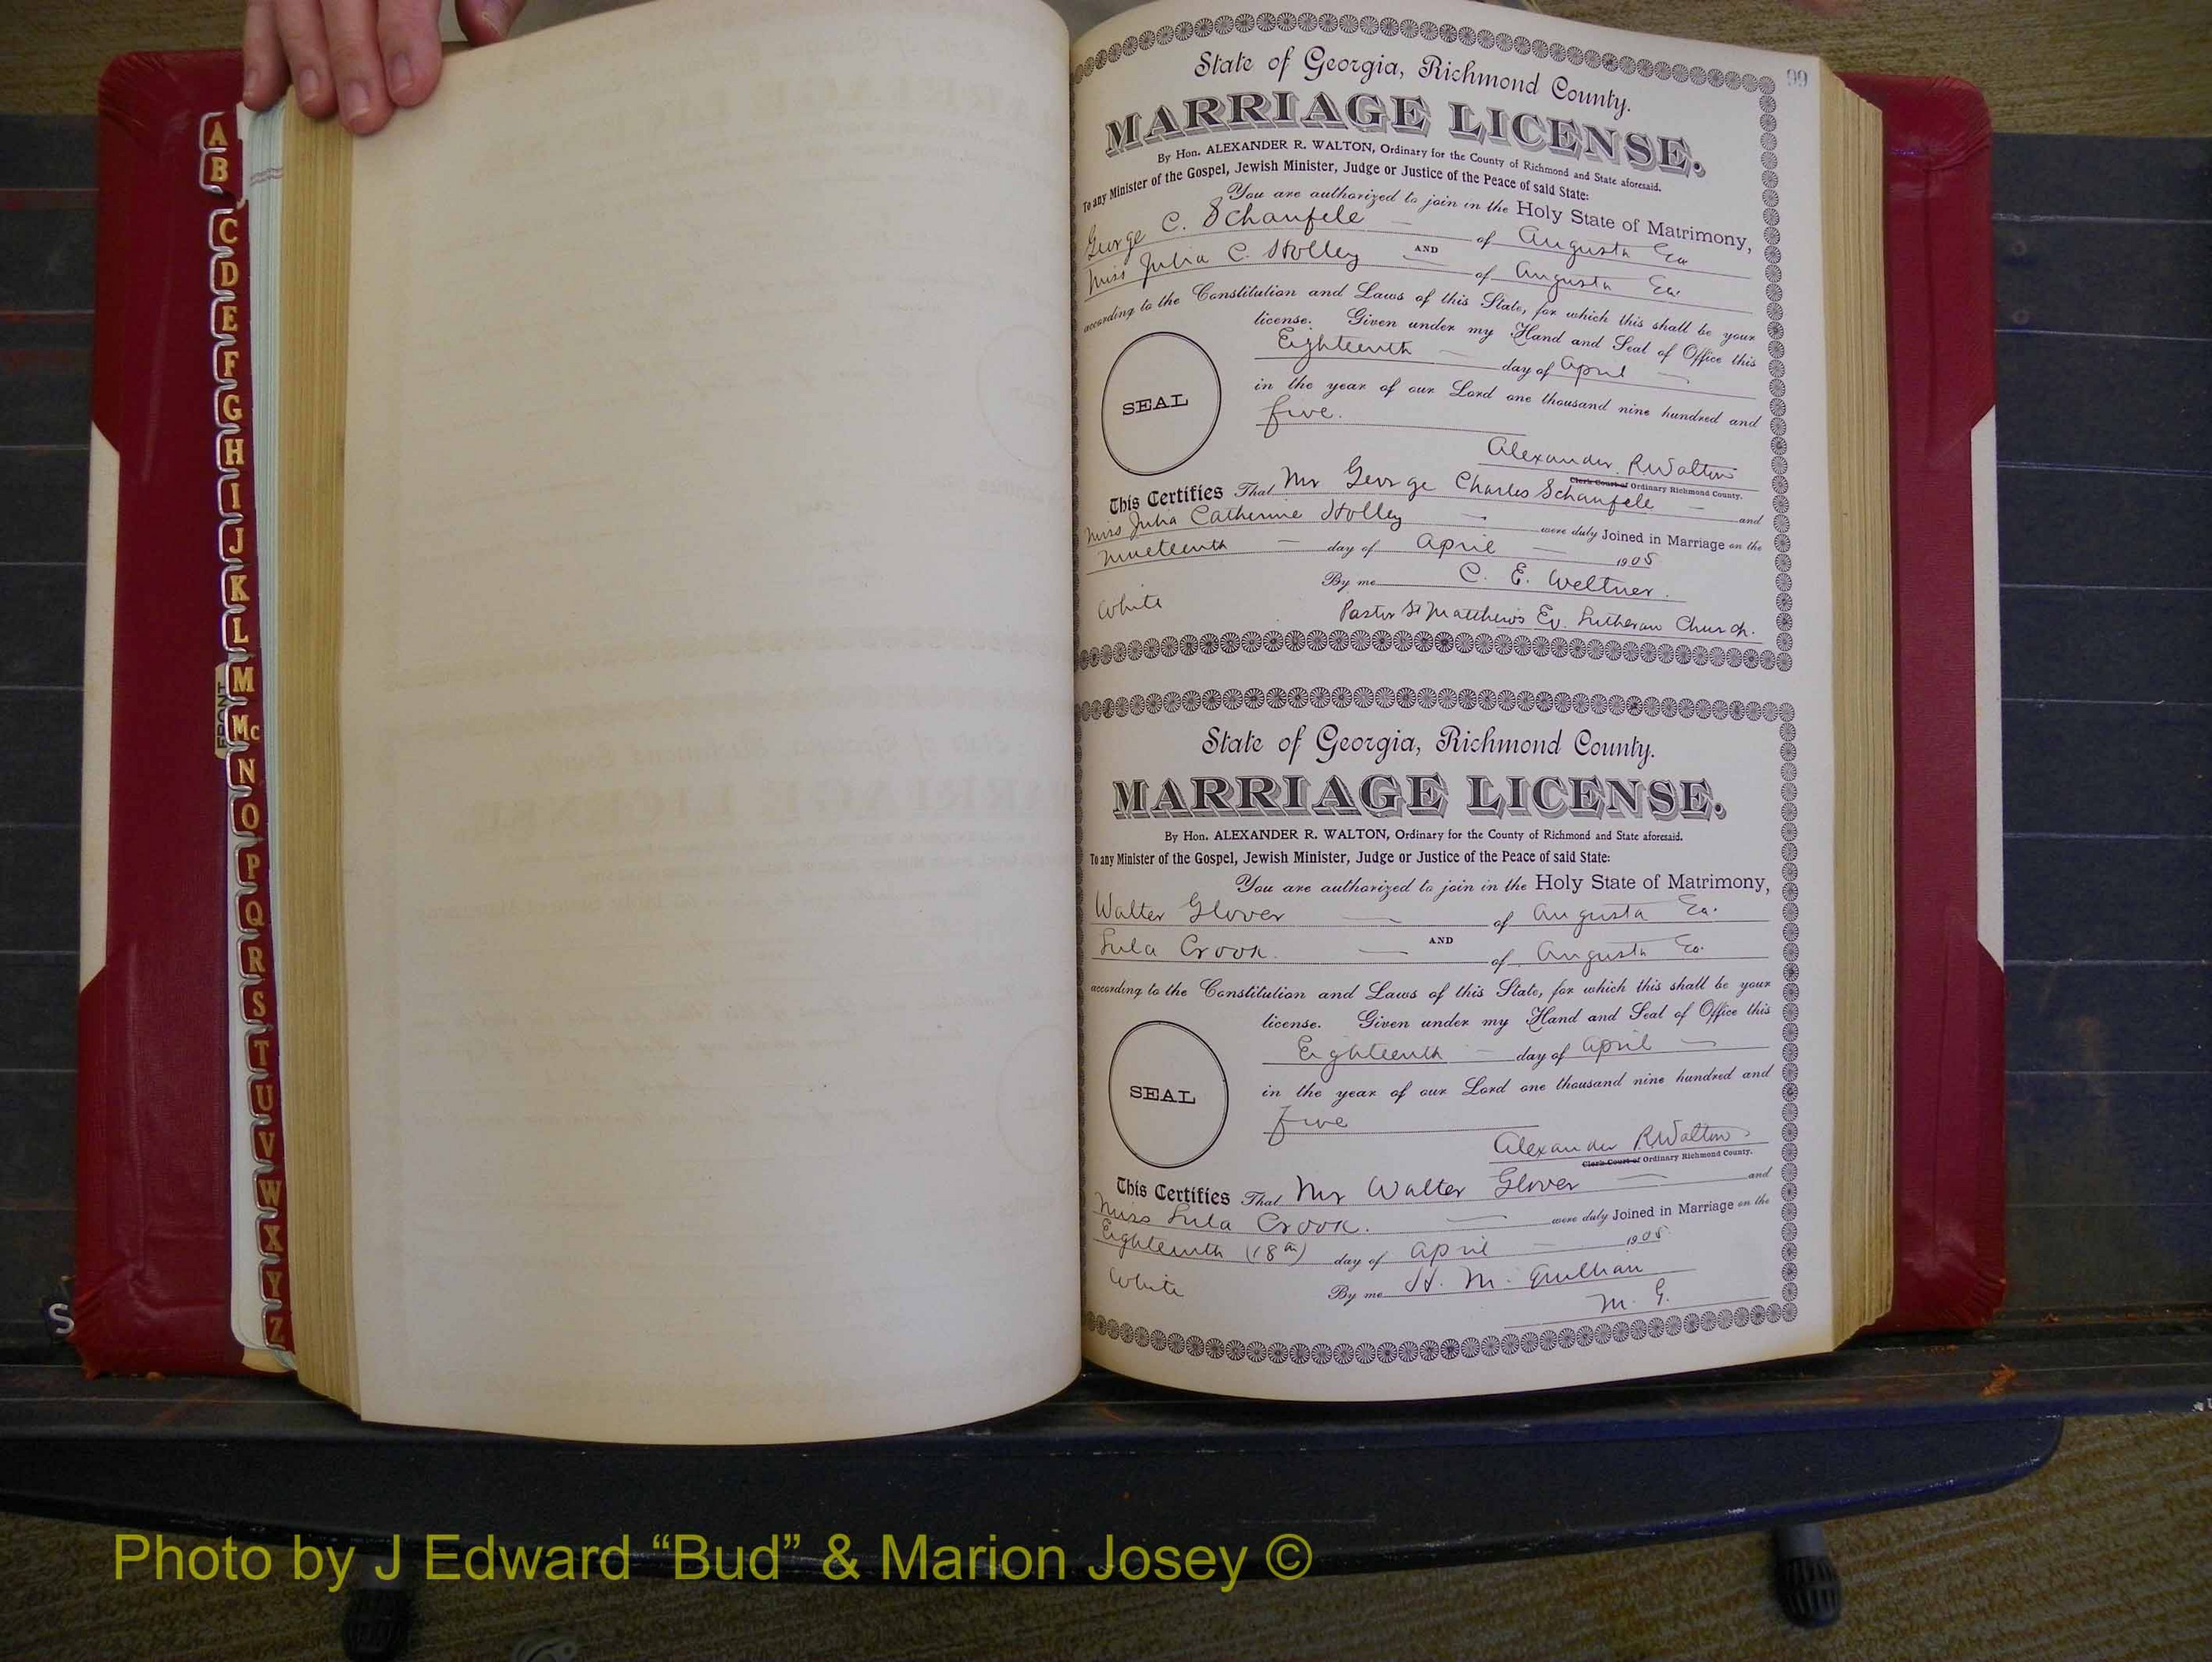 A
B
C
D
E
F
G
H
I
J
K
L
M
Mc
N
O
P
Q
R
S
T
U
V
W
X
Y
Z
FRONT
S
99
State of Georgia, Richmond County.
MARRIAGE LICENSE.
By Hon. ALEXANDER R. WALTON, Ordinary for the County of Richmond and State aforesaid.
To any Minister of the Gospel, Jewish Minister, Judge or Justice of the Peace of said State:
You are authorized to join in the Holy State of Matrimony,
George C. Schaufele of Augusta Ga
AND
Miss Julia C. Holley of Augusta Ga.
according to the Constitution and Laws of this State, for which this shall be your
license. Given under my Hand and Seal of Office this
Eighteenth day of April
in the year of our Lord one thousand nine hundred and
SEAL
five.
Alexander R Walton
Clerk Court of Ordinary Richmond County.
This Certifies That Mr George Charles Schaufele and
Miss Julia Catherine Holley were duly Joined in Marriage on the
Nineteenth day of April 1905
By me C. E. Weltner.
White
Pastor St Matthews Ev. Lutheran Church.
State of Georgia, Richmond County.
MARRIAGE LICENSE.
By Hon. ALEXANDER R. WALTON, Ordinary for the County of Richmond and State aforesaid.
To any Minister of the Gospel, Jewish Minister, Judge or Justice of the Peace of said State:
You are authorized to join in the Holy State of Matrimony,
Walter Glover of Augusta Ga.
AND
Lula Crook. of Augusta Ga.
according to the Constitution and Laws of this State, for which this shall be your
license. Given under my Hand and Seal of Office this
Eighteenth day of April
in the year of our Lord one thousand nine hundred and
SEAL
five
Alexander R Walton
Clerk Court of Ordinary Richmond County.
This Certifies That Mr Walter Glover and
Miss Lula Crook. were duly Joined in Marriage on the
Eighteenth (18th) day of April 1905.
White
By me H. M.
M. G.
Photo by J Edward “Bud” & Marion Josey ©